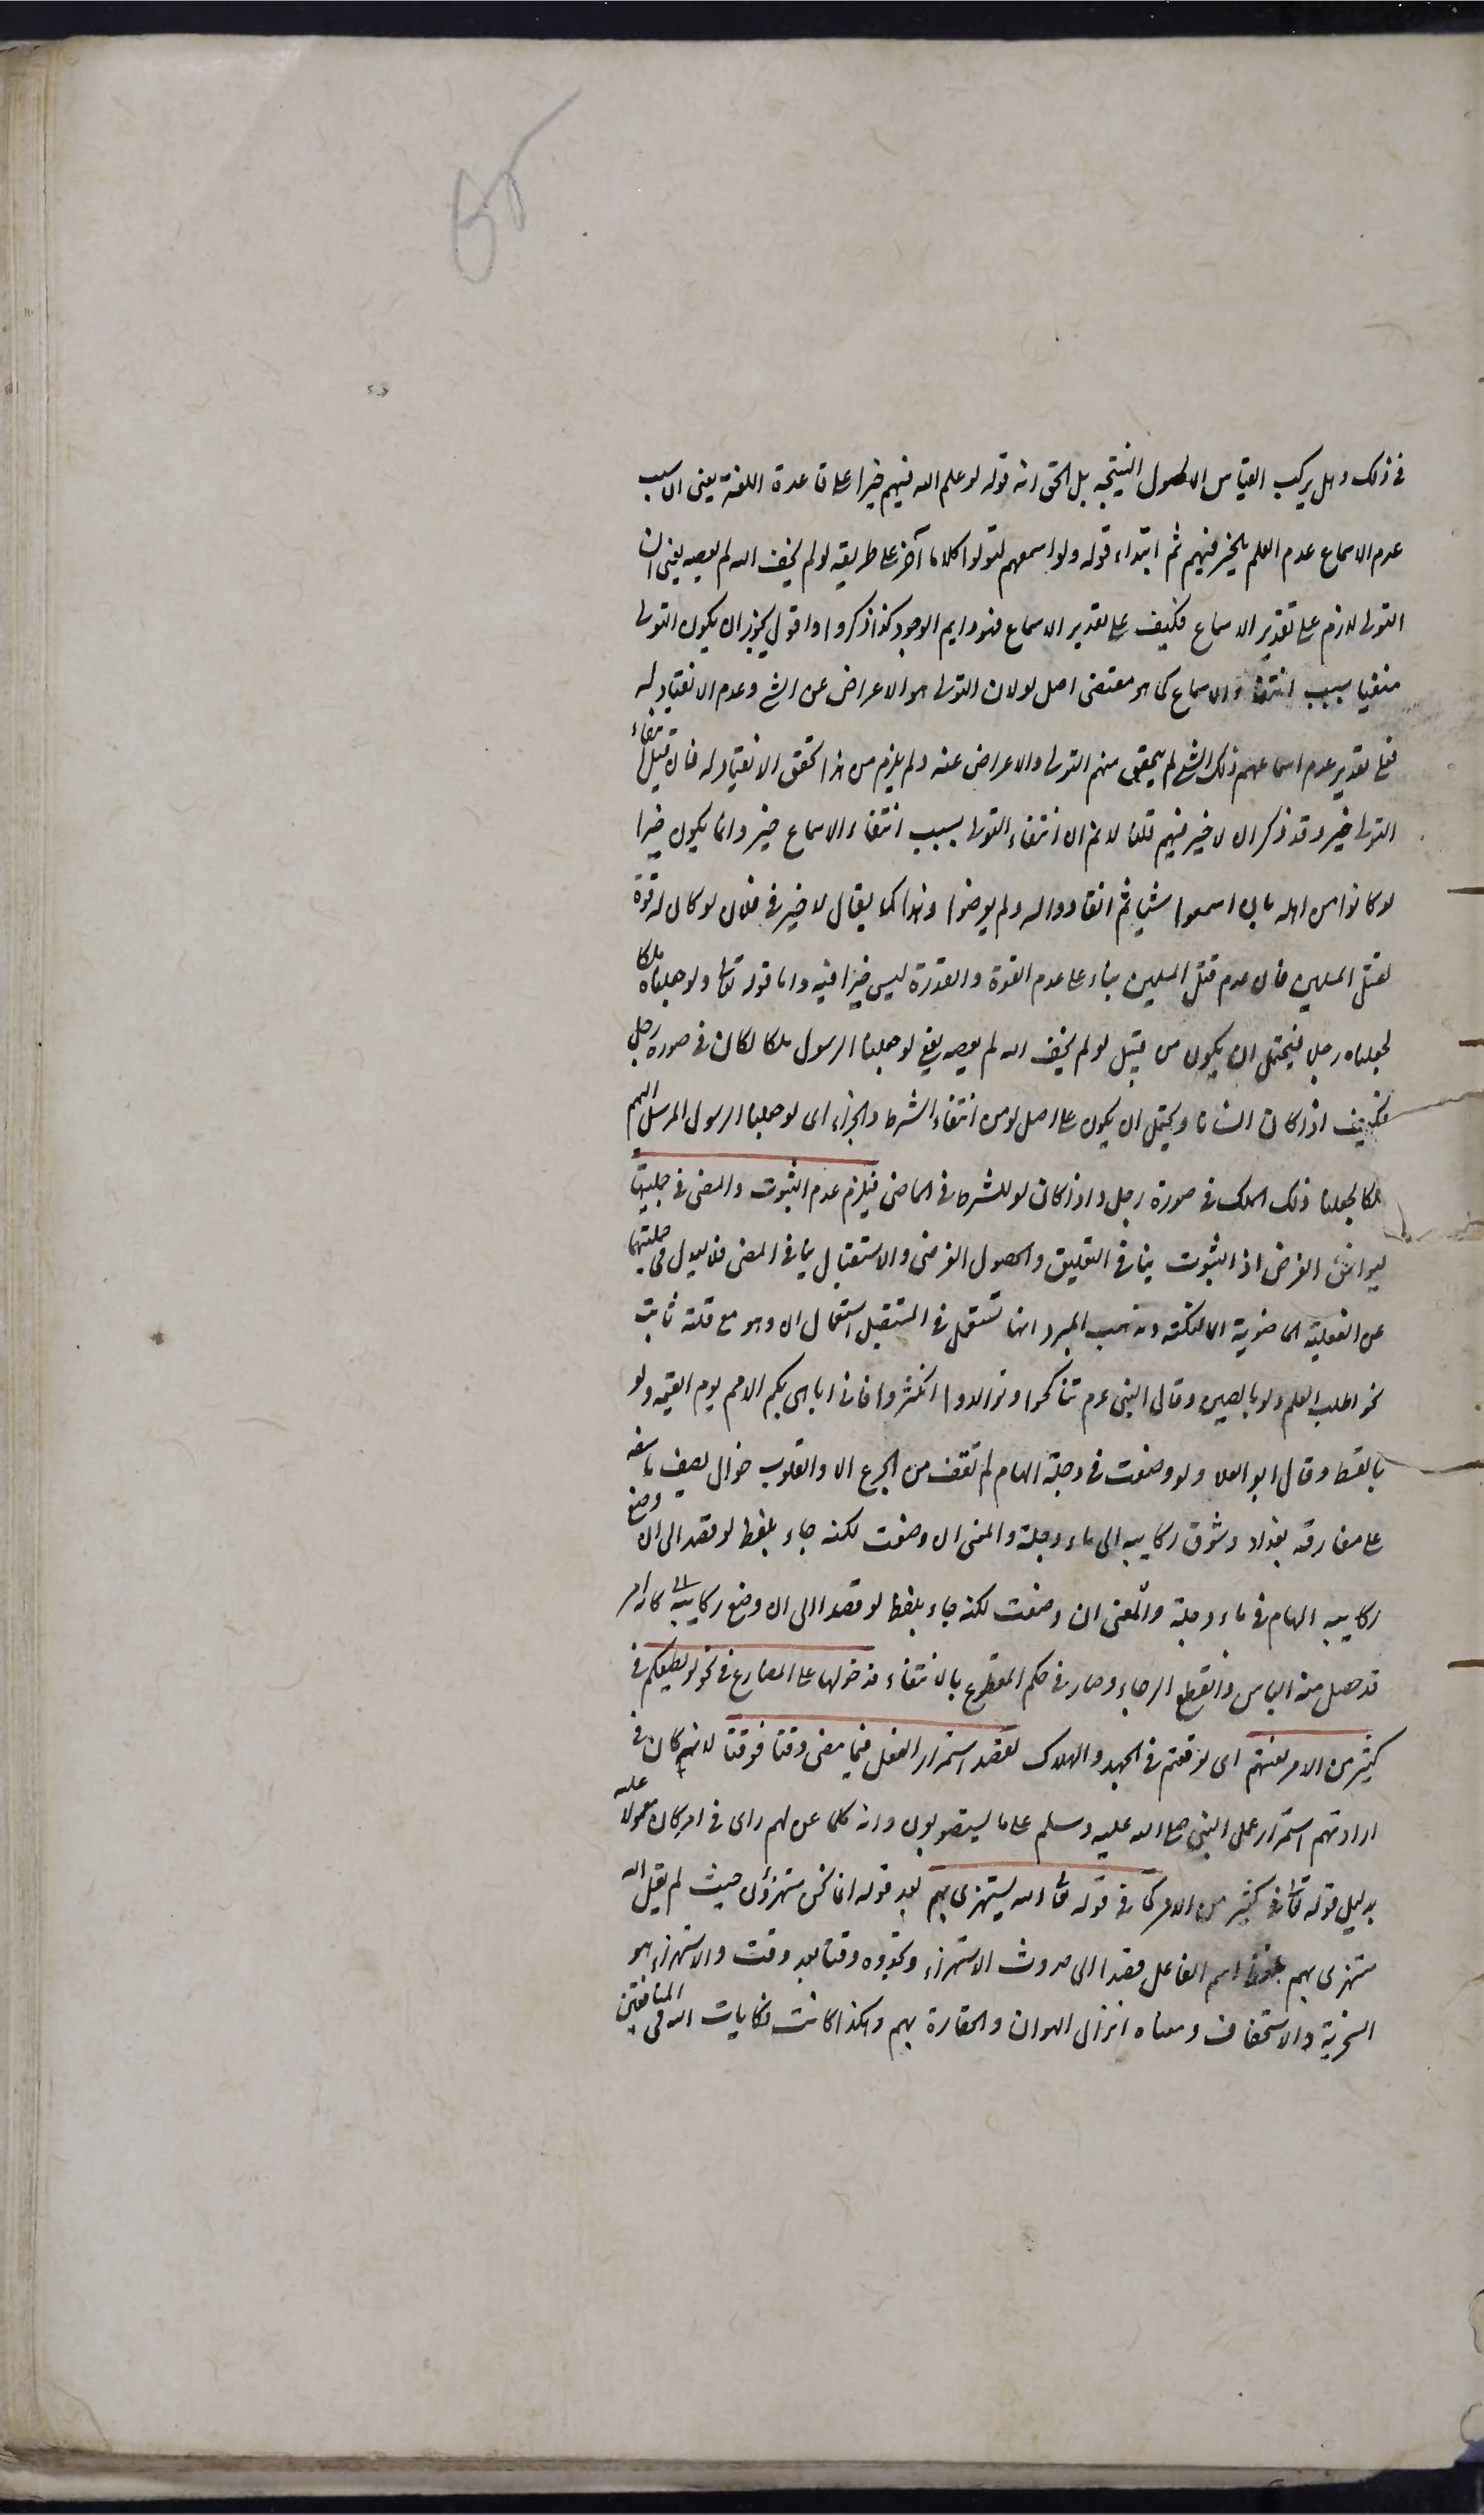 في ذلك وهل يركب القياس الا لحصول النتيجة بل الحق انه قوله لو علم الله فيهم خيرا على قاعدة اللغة يعني ان سبب
عدم الاسماع عدم العلم بالخير فيهم ثم ابتداء قوله ولو اسمعهم لتولوا كلاما آخر على طريقة لو لم يخف الله لم يعصه يعني ان
التولى لازم على تقدير الاسماع فكيف على تقدير الاسماع فهو دايم الوجود كذا ذكروا واقول يجوز ان يكون التولى
منفيا بسبب انتفاء الاسماع كما هو مقتضى اصل لو لان التولى هو الاعراض عن الشئ وعدم الانقياد له
فعلى تقدير عدم اسماعهم ذلك الشئ لم يتحقق منهم التولى والاعراض عنه ولم يلزم من هذا تحقق الانقياد له فان قيل انتفاء
التولى خير وقد ذكر ان لا خير فيهم قلنا لا نم ان انتفاء التولى بسبب انتفاء الاسماع خير وانما يكون خيرا
لو كانوا من اهله بان اسمعوا شيئا ثم انقادوا له ولم يعرضوا وهذا كما يقال لا خير في فلان لو كان له قوة
لقتل المسلمين فان عدم قتل المسلمين بناء على عدم القوة والقدرة ليس خيرا فيه واما قوله تعالى ولو جعلناه ملكا
لجعلناه رجلا فيحتمل ان يكون من قبيل لو لم يخف الله لم يعصه يعني لو جعلنا الرسول ملكا لكان في صورة رجل
فكيف اذا كان انسانا ويحتمل ان يكون على اصل لو من انتفاء الشرط والجزاء اى لو جعلنا الرسول المرسل اليهم
ملكا لجعلنا ذلك الملك في صورة رجل واذا كان لو للشرط في الماضى فيلزم عدم الثبوت والمضى في جملتيها
ليوافق الغرض اذ الثبوت ينافى التعليق والحصول الفرضى والاستقبال ينافى المضى فلا يعدل في جملتيها
عن الفعلية الماضوية الا لنكتة ومذهب المبرد انها تستعمل في المستقبل استعمال ان وهو مع قلته ثابت
نحو اطلب العلم ولو بالصين وقال النبي عم تناكحوا وتوالدوا تكثروا فانى اباهى بكم الامم يوم القيمة ولو
بالسقط وقال ابو العلا ولو وضعت في دجلة الهام لم تفق من الجرع الا والقلوب خوال يصف تاسفه
على مفارقة بغداد وشوق ركايبه الى ماء دجلة والمعنى ان وضعت لكنه جاء بلفظ لو قصدا الى ان وضع
ركايبه الهام في ماء دجلة والمعنى ان وضعت لكنه جاء بلفظ لو قصدا الى ان وضع ركايبه كانه امر
قد حصل منه الياس وانقطع الرجاء وصار في حكم المقطوع بالانتفاء فدخولها على المضارع في نحو لو يطيعكم في
كثير من الامر لعنتم اى لوقعتم في الجهد والهلاك لقصد استمرار الفعل فيما مضى وقتا فوقتا لانهم كان في
ارادتهم استمرار عمل النبي صلى الله عليه وسلم على ما يستصوبون وانه كلما عن لهم راى في امر كان معمولا عليه
بدليل قوله تعالى في كثير من الامر كما في قوله تعالى الله يستهزئ بهم بعد قوله انما نحن مستهزؤن حيث لم يقل الله
مستهزئ بهم بلفظ اسم الفاعل قصدا الى حدوث الاستهزاء وتجدده وقتا بعد وقت والاستهزاء هو
السخرية والاستخفاف ومعناه انزال الهوان والحقارة بهم وهكذا كانت نكايات الله في المنافقين